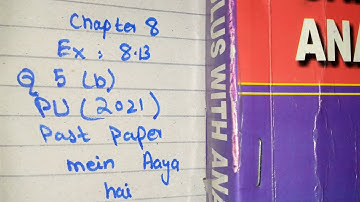 Chapter 8
Ex : 8.13
Q 5 (b)
PU (2021)
Past Paper
mein Aaya
hai
ANA
LUS WITH ANA